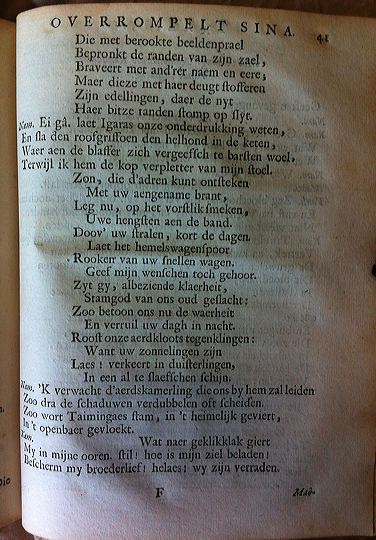 OVERROMPELT SINA. 41
Die met berookte beeldenprael
Bepronkt de randen van zijn zael,
Braveert met andrer naem en eere;
Maer dieze met haer deugt stofferen
Zijn edellingen, daer de nyt
Haer bitze tanden stomp op slyt.
Nam. Ei gâ. laet Igaras onze onderdrukking weten,
En sla den roofgriffoen den helhond in de keten,
Waer aen de blaffer zich vergeefsch te barsten woel,
Terwijl ik hem de kop verpletter van mijn stoel.
Zon, die d'adren kunt ontsteken
Met uw aengename brant,
Leg nu, op het vorstlik smeken,
Uwe hengsten aen de band.
Doov' uw stralen, kort de dagen.
Laet het hemelswagenspoor
Rooken van uw snellen wagen.
Geef mijn wenschen toch gehoor.
Zyt gy, albeziende klaerheit,
Stamgod van ons oud geslacht:
Zoo betoon ons nu de waerheit
En verruil uw dagh in nacht.
Roost onze aerdkloots tegenklingen:
Want uw zonnelingen zijn
Laes! verkeert in duisterlingen,
In een al te slaefschen schijn.
Nam. 'K verwacht d'aerdskamerling die ons by hem zal leiden
Zoo dra de schaduwen verdubbelen oft scheiden.
Zoo wort Taimingaes stam, in 't heimelijk geviert,
In 't openbaer gevloekt.
Zon. Wat naer geklikklak giert
My in mijne ooren. stil! hoe is mijn ziel beladen!
Bescherm my broederlief! helaes! wy zijn verraden.
F Mad-